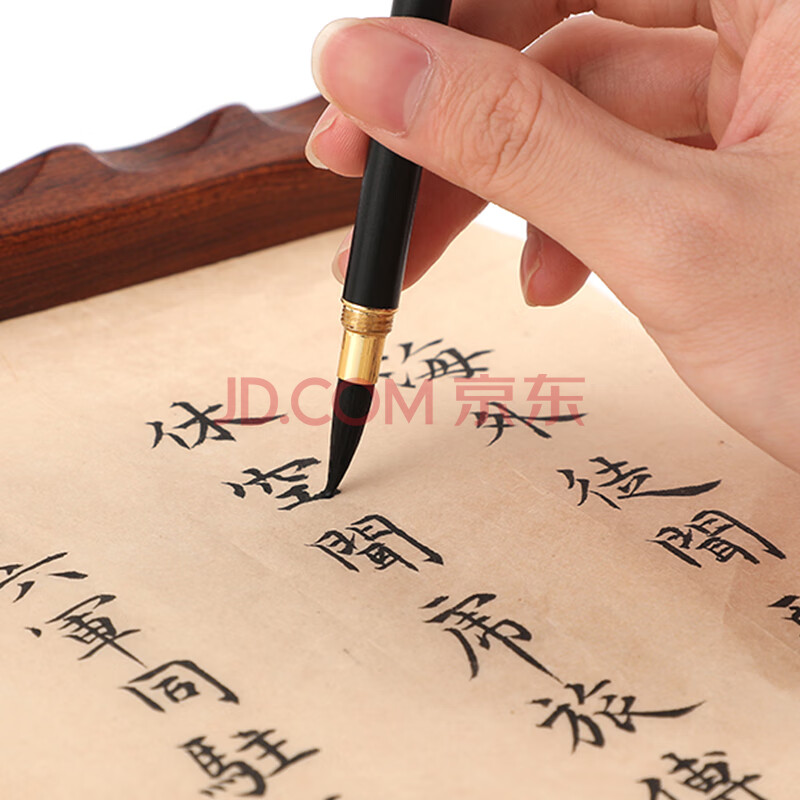 海外徒聞
休空聞虎旅傳
六軍同駐
JD.COM 京东